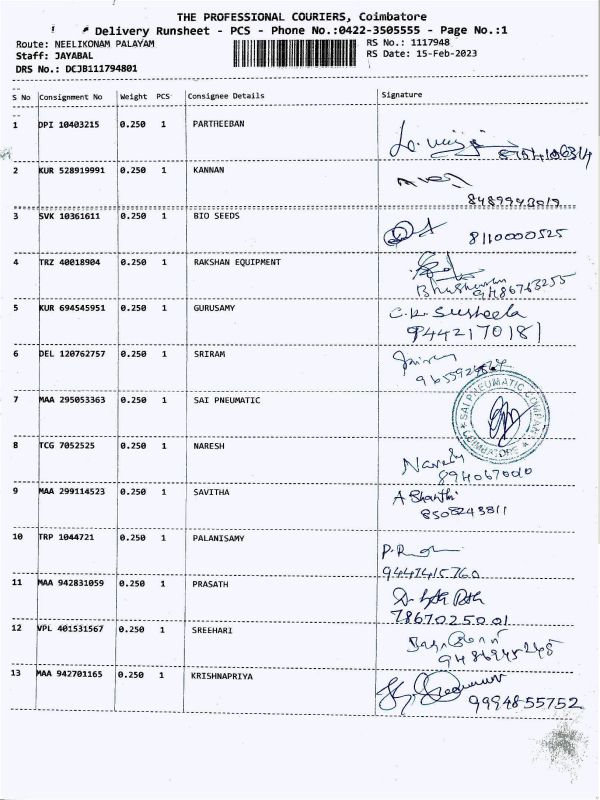 THE PROFESSIONAL COURIERS, Coimbatore
Delivery Runsheet - PCS - Phone No.:0422-3505555 - Page No.:1
Route: NEELIKONAM PALAYAM RS No.: 1117948
Staff: JAYABAL RS Date: 15-Feb-2023
DRS No.: DCJB111794801
S No Consignment No Weight PCS Consignee Details Signature
1 DPI 10403215 0.250 1 PARTHEEBAN
2 KUR 528919991 0.250 1 KANNAN
8489943019
3 SVK 10361611 0.250 1 BIO SEEDS
8110000525
4 TRZ 40018904 0.250 1 RAKSHAN EQUIPMENT
9486763255
5 KUR 694545951 0.250 1 GURUSAMY C.K. Susheela
9442170181
6 DEL 120762757 0.250 1 SRIRAM
7 MAA 295053363 0.250 1 SAI PNEUMATIC
SAI PNEUMATIC COMPANY
COIMBATORE
8 TCG 7052525 0.250 1 NARESH
Naresh
894067000
9 MAA 299114523 0.250 1 SAVITHA A Shanthi
8508243811
10 TRP 1044721 0.250 1 PALANISAMY
9447415760
11 MAA 942831059 0.250 1 PRASATH
7867025001
12 VPL 401531567 0.250 1 SREEHARI
9486945245
13 MAA 942701165 0.250 1 KRISHNAPRIYA
99948-55752